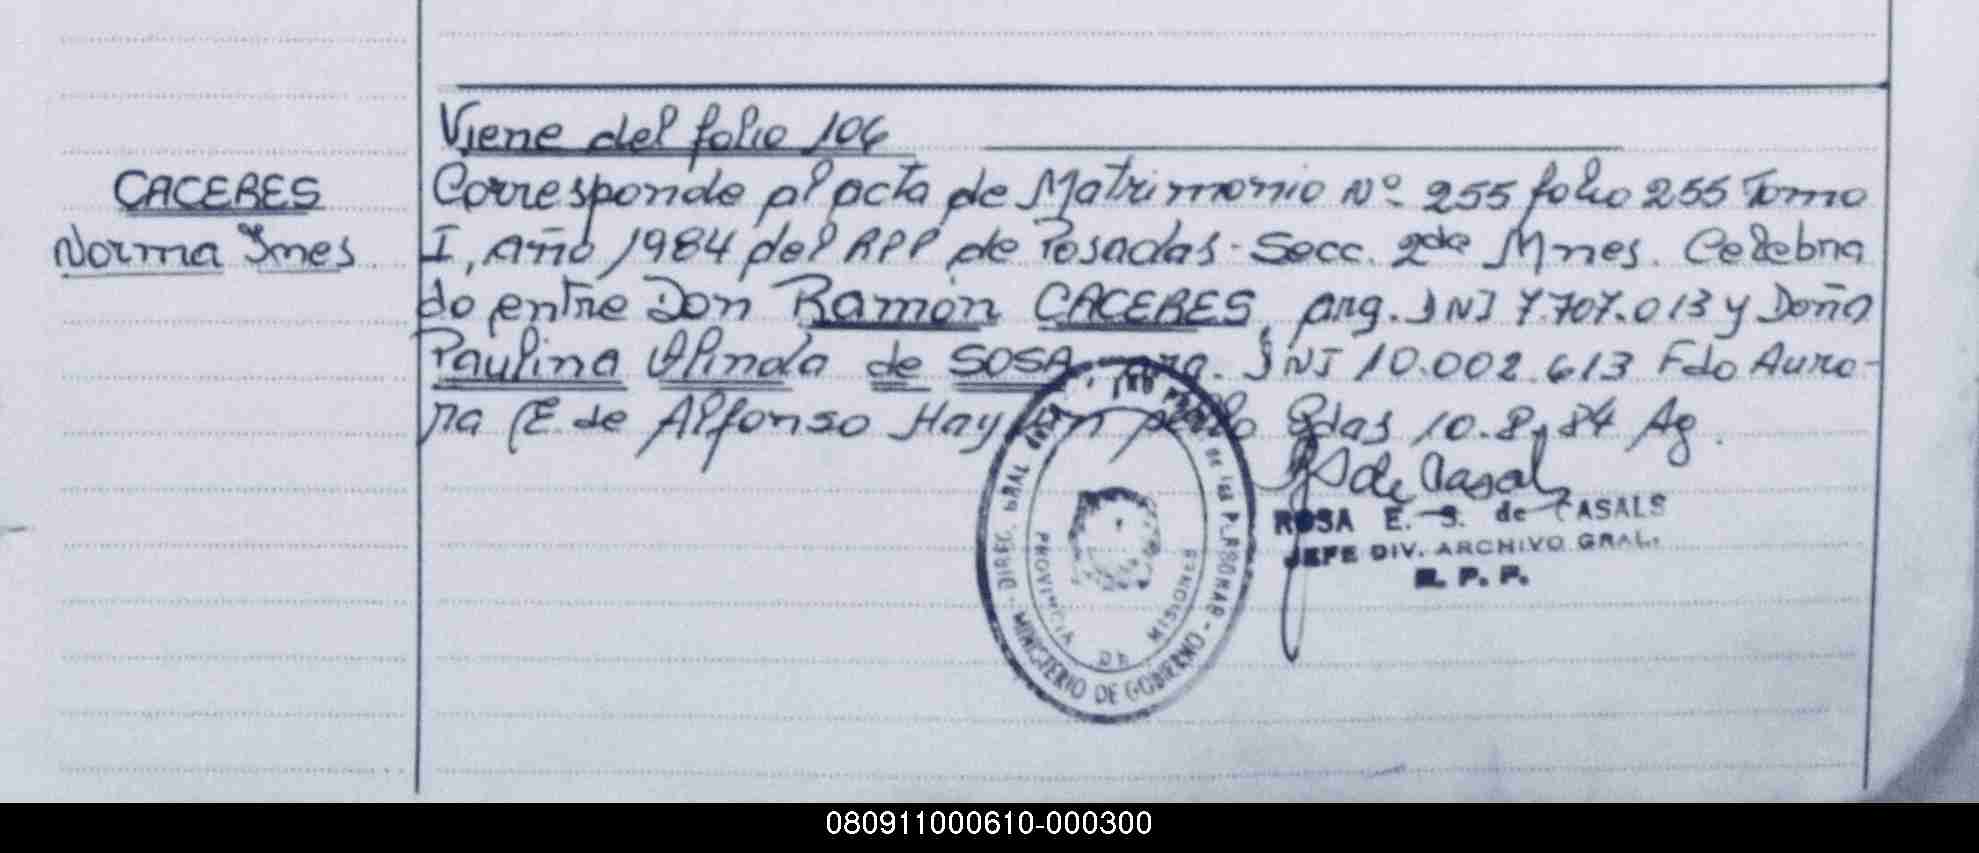 Viene del folio 106
CACERES
Norma Ines
Corresponde al acta de Matrimonio Nº 255 folio 255 Tomo
I, Año 1984 del RPP de Posadas - Secc. 2da Mnes. Celebra
do entre Don Ramón CACERES, arg. DNI 7.707.013 y Doña
Paulina Olinda de SOSA arg. DNI 10.002.613 Fdo Auro-
ra E. de Alfonso Hay un sello Pdas 10.8.84 Ag.
ROSA E. S. de CASALS
JEFE DIV. ARCHIVO GRAL.
R. P. P.
DIREC. GRAL DEL REG PROV. de las PERSONAS - MINISTERIO DE GOBIERNO -
PROVINCIA DE MISIONES
080911000610-000300